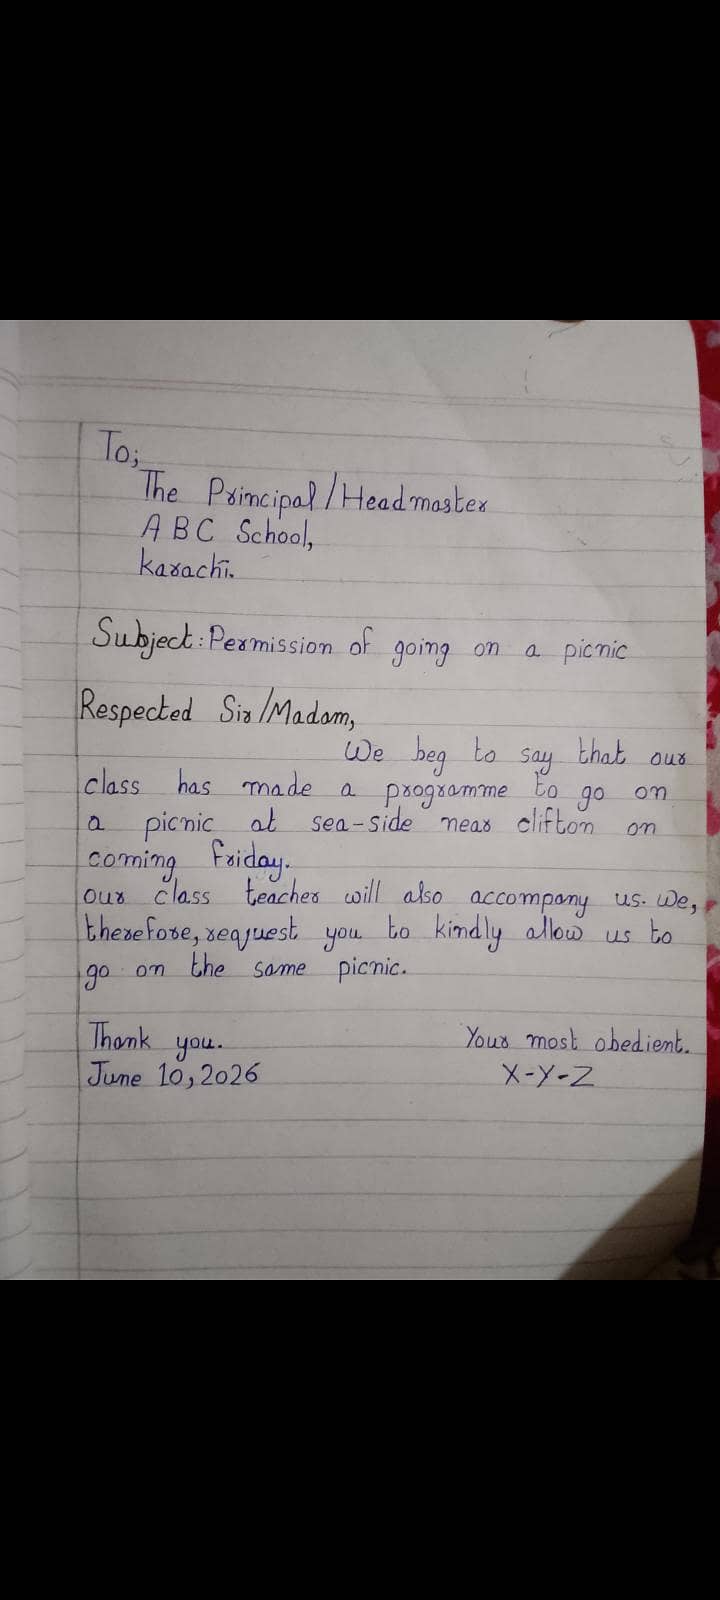 To;
The Principal/Headmaster
A B C School,
karachi.
Subject: Permission of going on a picnic
Respected Sir/Madam,
We beg to say that our
class has made a programme to go on
a picnic at sea-side near clifton on
coming Friday.
our class teacher will also accompany us. We,
therefore, request you to kindly allow us to
go on the same picnic.
Thank you. Your most obedient.
June 10, 2026 X-Y-Z